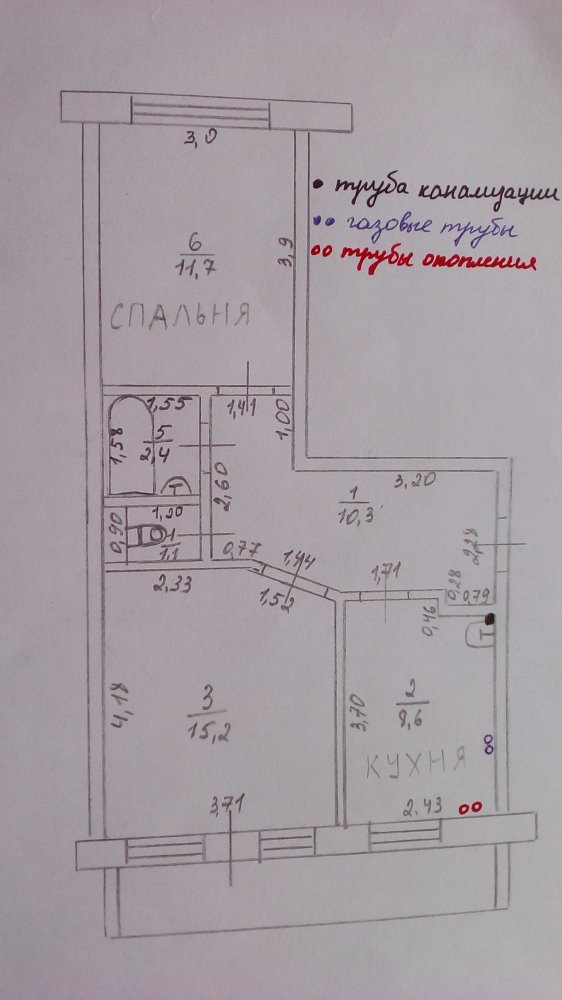 3,0
• труба канализации
•• газовые трубы
oo трубы отопления
6
11,7
3,9
СПАЛЬНЯ
1,55
1,41
1,00
1,58
5
2,4
Т
2,60
3,20
1
10,3
1,20
0,90
1
1,1
0,77
1,44
1,52
2,33
1,71
2,28
0,28
0,79
0,46
Т
4,18
3
15,2
3,70
2
8,6
КУХНЯ
3,71
2,43